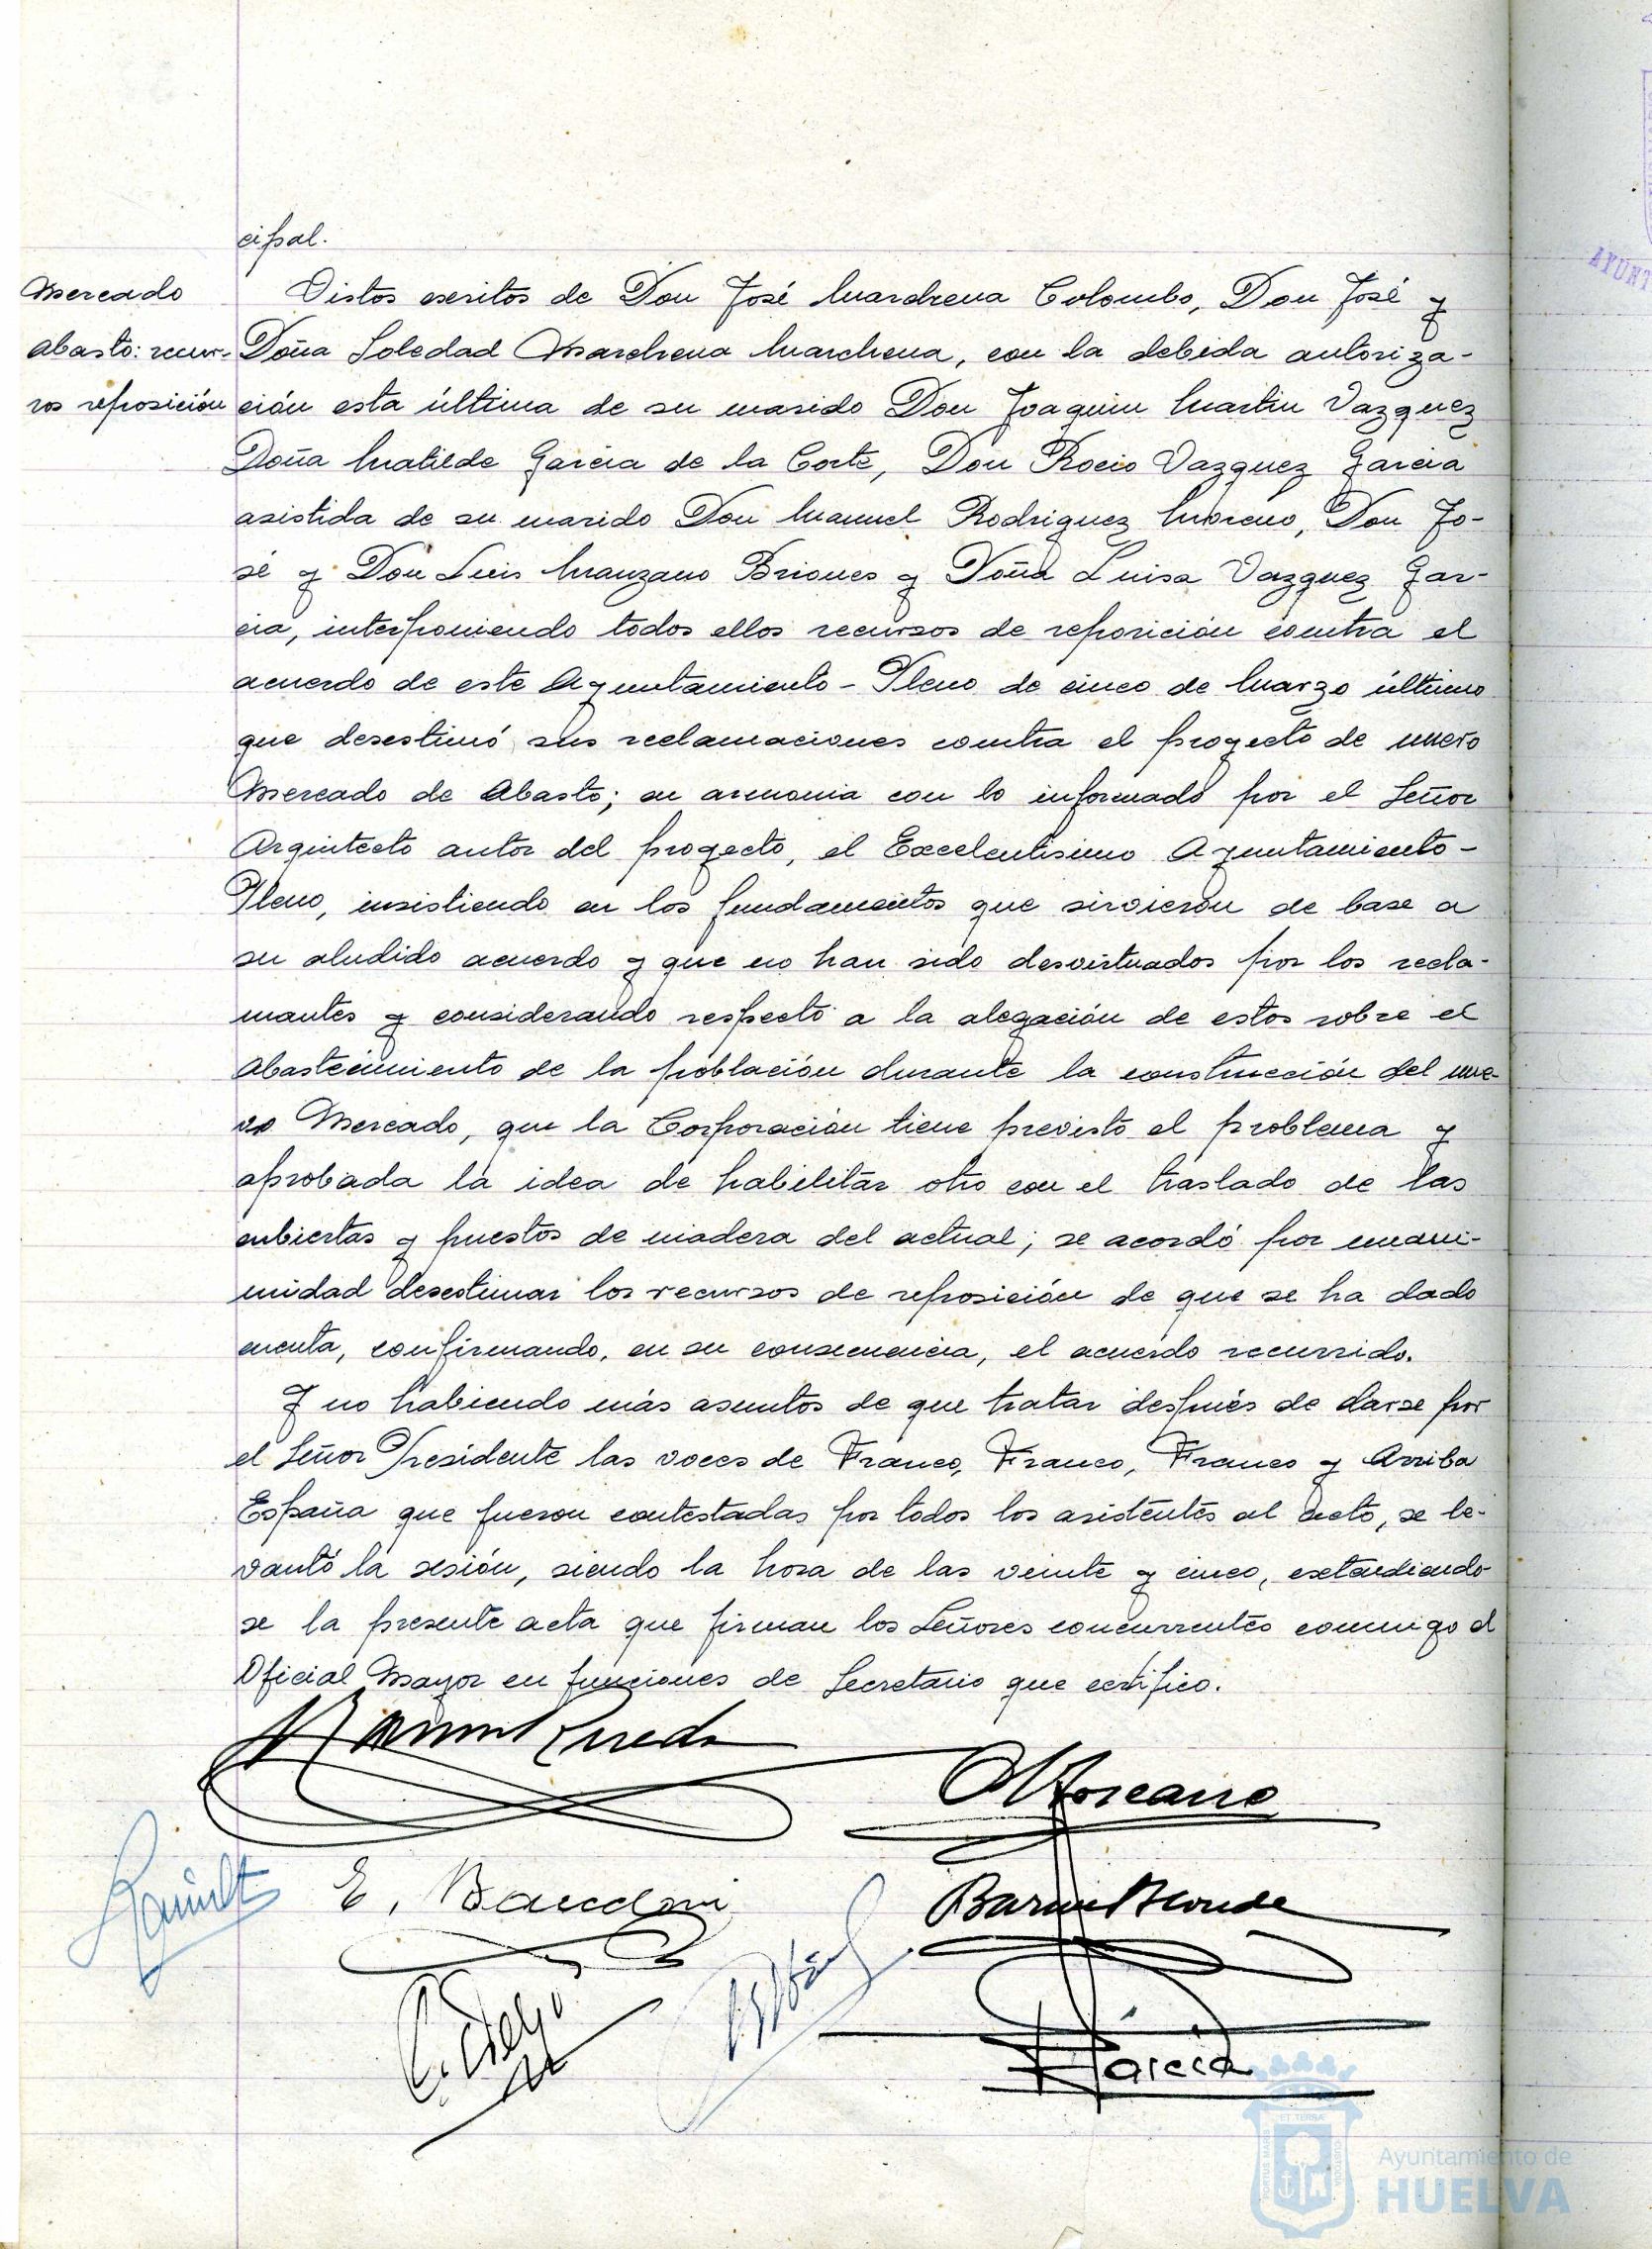 cipal.
Mercado
Abasto: recur-
sos reposición
Vistos escritos de Don José Marchena Colombo, Don José y
Doña Soledad Marchena Marchena, con la debida autoriza-
ción esta última de su marido Don Joaquin Martin Vazquez
Doña Matilde Garcia de la Corte, Don Rocio Vazquez Garcia
asistida de su marido Don Manuel Rodriguez Moreno, Don Jo-
sé y Don Luis Manzano Briones y Doña Luisa Vazquez Gar-
cia, interponiendo todos ellos recursos de reposición contra el
acuerdo de este Ayuntamiento-Pleno de cinco de Marzo último
que desestimó sus reclamaciones contra el proyecto de nuevo
Mercado de Abasto; en armonia con lo informado por el Señor
Arquitecto autor del proyecto, el Excelentisimo Ayuntamiento-
Pleno, insistiendo en los fundamentos que sirvieron de base a
su aludido acuerdo y que no han sido desvirtuados por los recla-
mantes y considerando respecto a la alegación de estos sobre el
abastecimiento de la población durante la construcción del nue-
vo Mercado, que la Corporación tiene previsto el problema y
aprobada la idea de habilitar otro con el traslado de las
cubiertas y puestos de madera del actual; se acordó por unani-
midad desestimar los recursos de reposición de que se ha dado
cuenta, confirmando, en su consecuencia, el acuerdo recurrido.
Y no habiendo más asuntos de que tratar después de darse por
el Señor Presidente las voces de Franco, Franco, Franco y Arriba
España que fueron contestadas por todos los asistentes al acto, se le-
vantó la sesión, siendo la hora de las veinte y cinco, extendiendo-
se la presente acta que firman los Señores concurrentes conmigo el
Oficial Mayor en funciones de Secretario que certifico.
E.
Garcia
AYUNT
Ayuntamiento de
HUELVA